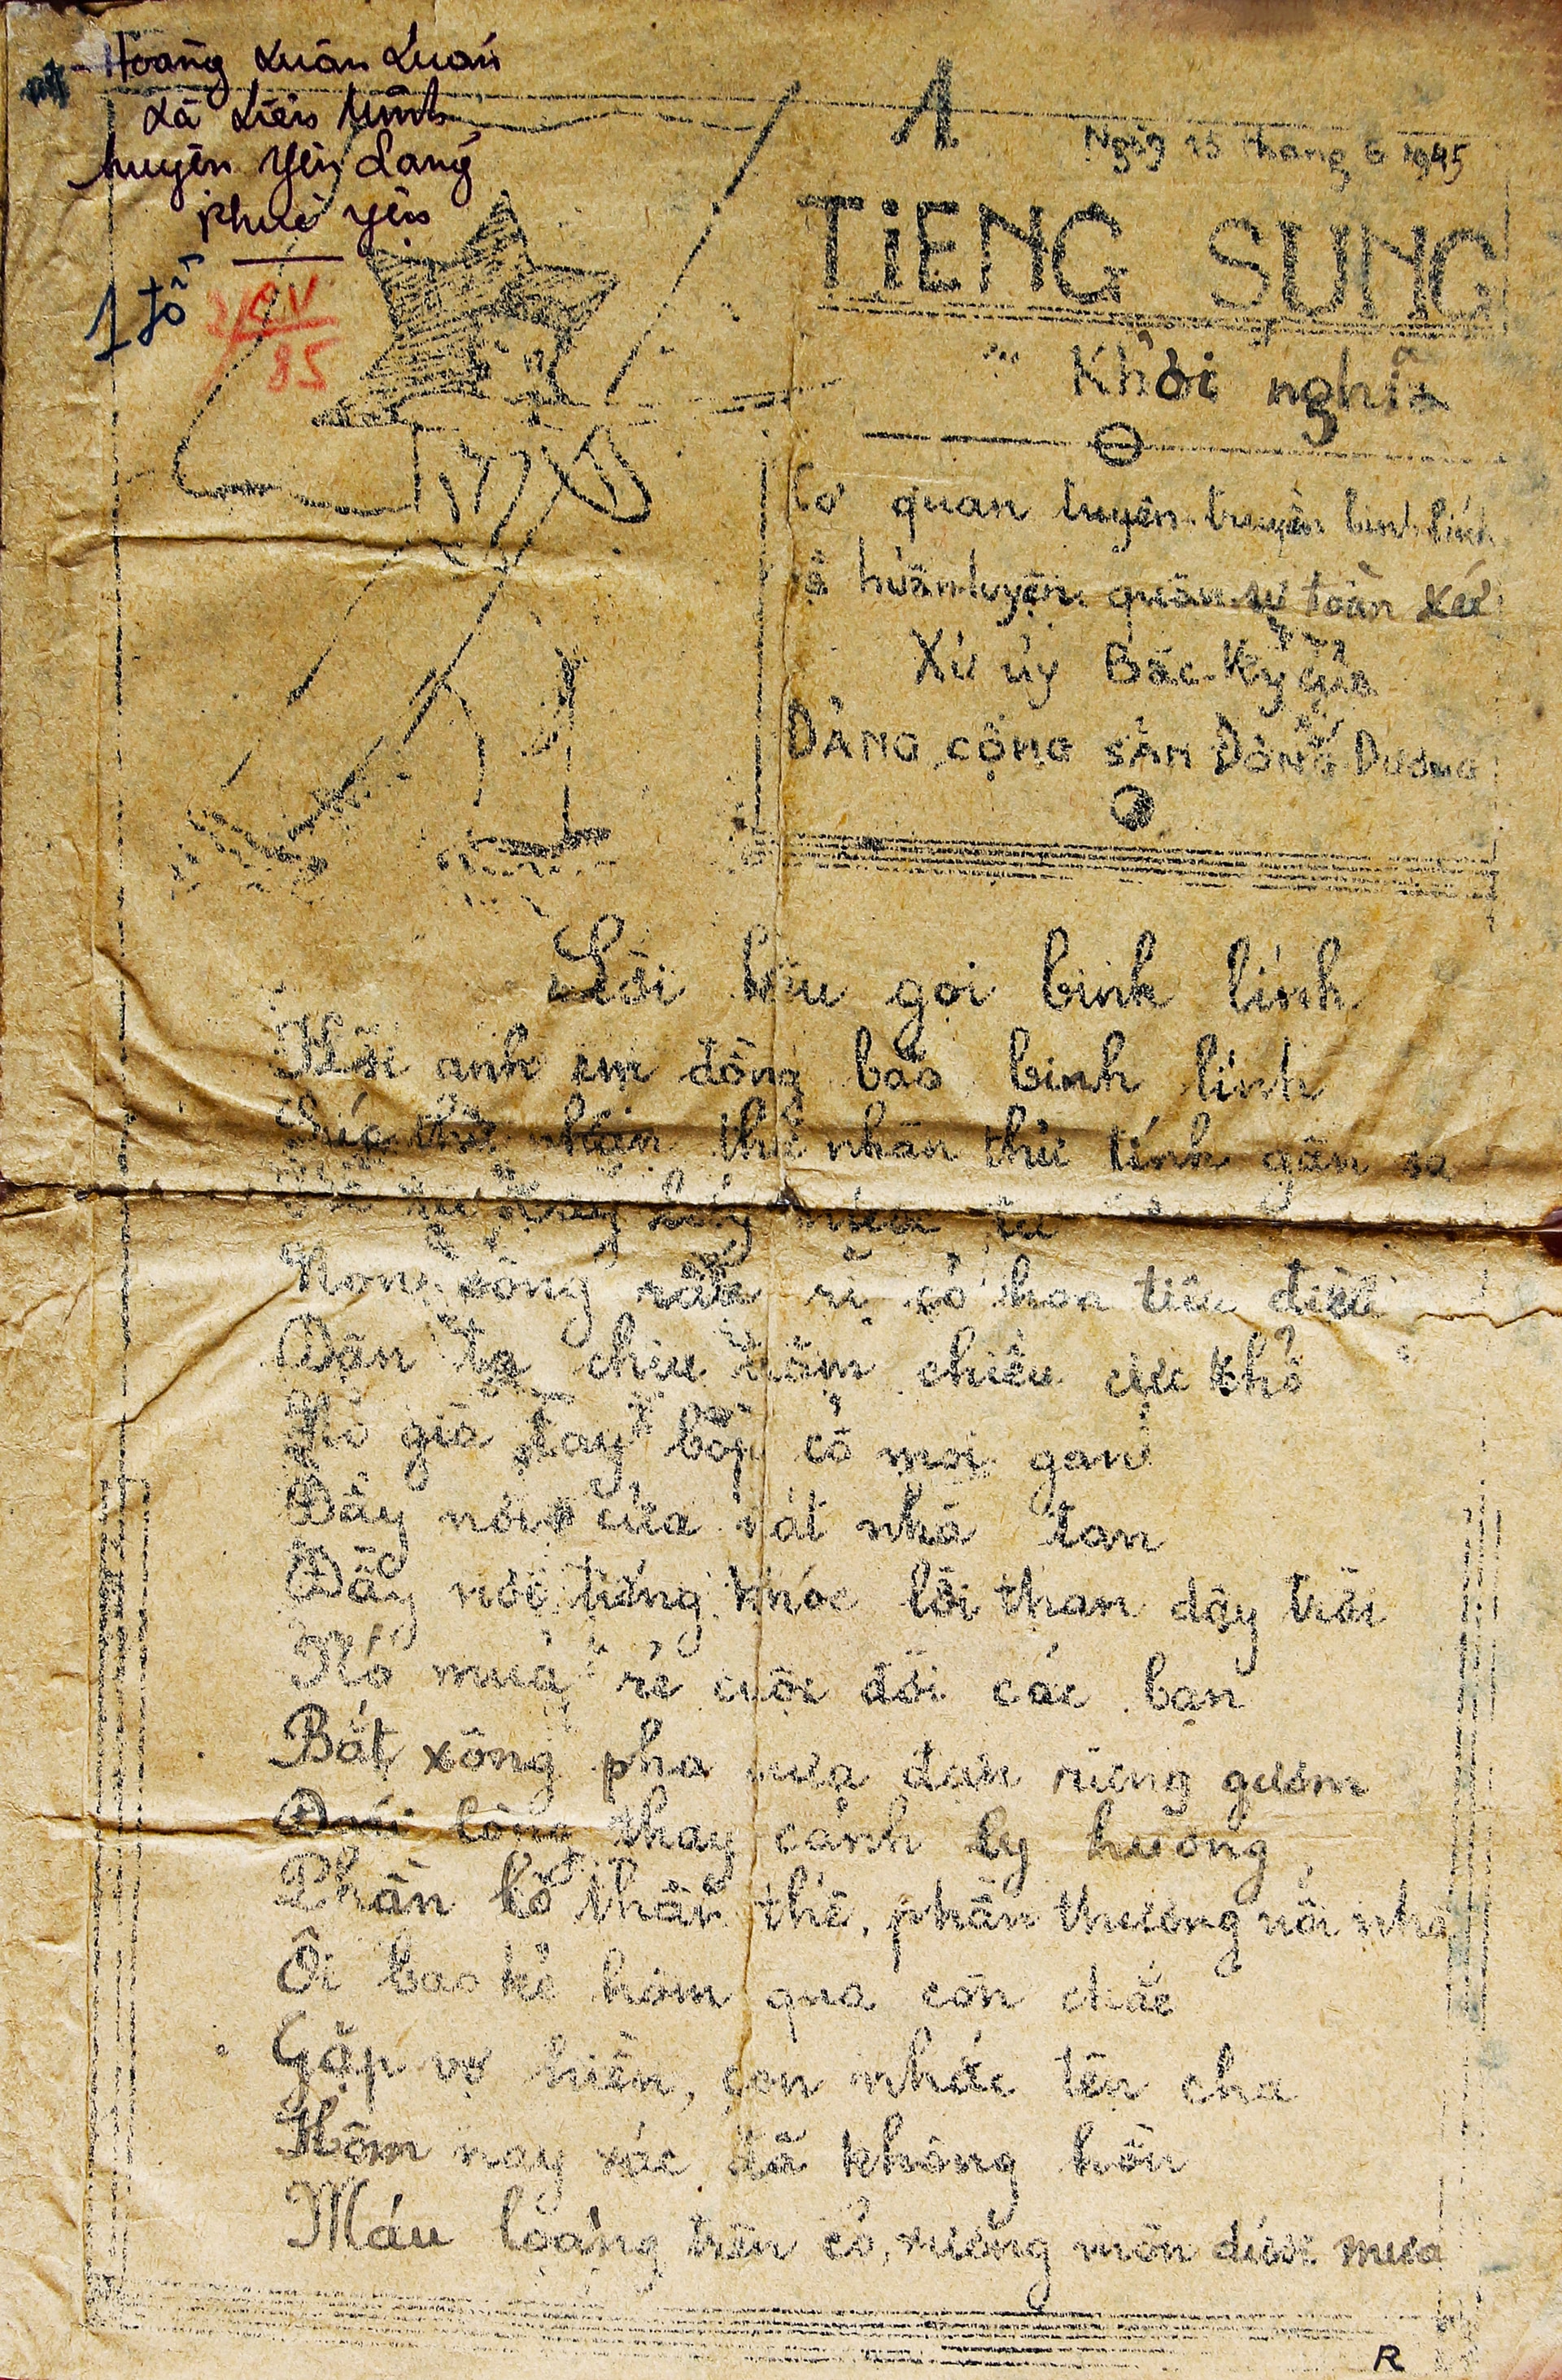 Hoàng Xuân Luân
Xã Liên Minh
huyện Yên Lãng
Phúc Yên
1 tờ
85
1
Ngày 15 tháng 6 1945
TIẾNG SÚNG
Khởi nghĩa
Cơ quan tuyên truyền binh lính
và huấn luyện quân sự toàn xứ
Xứ ủy Bắc-Kỳ của
ĐẢNG CỘNG SẢN ĐÔNG DƯƠNG
Lời kêu gọi binh lính
Hỡi anh em đồng bào binh lính
thử nhân thử tính gần xa
Non sông rầu rĩ cỏ hoa tiêu điều
Dân ta chịu trăm chiều cực khổ
Nó giở tay bóp cổ moi gan
Đầy nơi cửa nát nhà tan
Đầy nơi tiếng khóc lời than dậy trời
Nó mua rẻ cuộc đời các bạn
Bắt xông pha mưa đạn rừng gươm
Đau lòng thay cảnh ly hương
Phần lo thân thế, phần thương nỗi nhà
Ôi bao kẻ hôm qua còn chắc
Gặp vợ hiền, con nhắc tên cha
Hôm nay xác đã không hồn
Máu loang trên cỏ, xương mòn dưới mưa
R